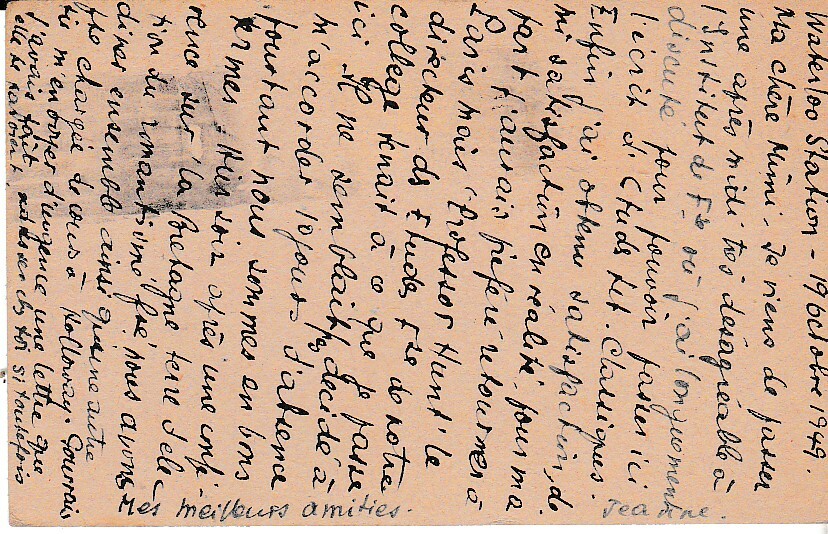 Waterloo Station - 19 octobre 1949.
Ma chère Mimi - Je viens de passer
une après midi très désagréable à
l'Institut de Fse où j'ai longuement
discuté pour pouvoir passer ici
l'écrit d'Etuds Lit. Classiques.
Enfin j'ai obtenu satisfaction, de
mi satisfaction en réalité. pour ma
part j'aurais préféré retourner à
Paris mais "Professor Hunt" le
directeur des Etudes Fse de notre
college tenait à ce que je passe
ici. Il ne semblait pas décidé à
m'accorder 10 jours d'absence
pourtant nous sommes en bons
termes. Hier soir après une conf
rence sur la Bretagne terre d'élec
tion du romantisme fse, nous avons
diner ensemble ainsi qu'une autre
fse chargée de cours à Holloway. Pourrais
tu m'envoyer d'urgence une lettre que
j'avais fait
elle se trouvent chez toi si toutefois
Mes meilleurs amitiés. Jeanne.